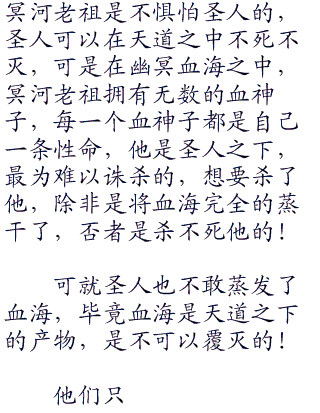 冥河老祖是不惧怕圣人的，
圣人可以在天道之中不死不
灭，可是在幽冥血海之中，
冥河老祖拥有无数的血神
子，每一个血神子都是自己
一条性命，他是圣人之下，
最为难以诛杀的，想要杀了
他，除非是将血海完全的蒸
干了，否者是杀不死他的！
可就圣人也不敢蒸发了
血海，毕竟血海是天道之下
的产物，是不可以覆灭的！
他们只